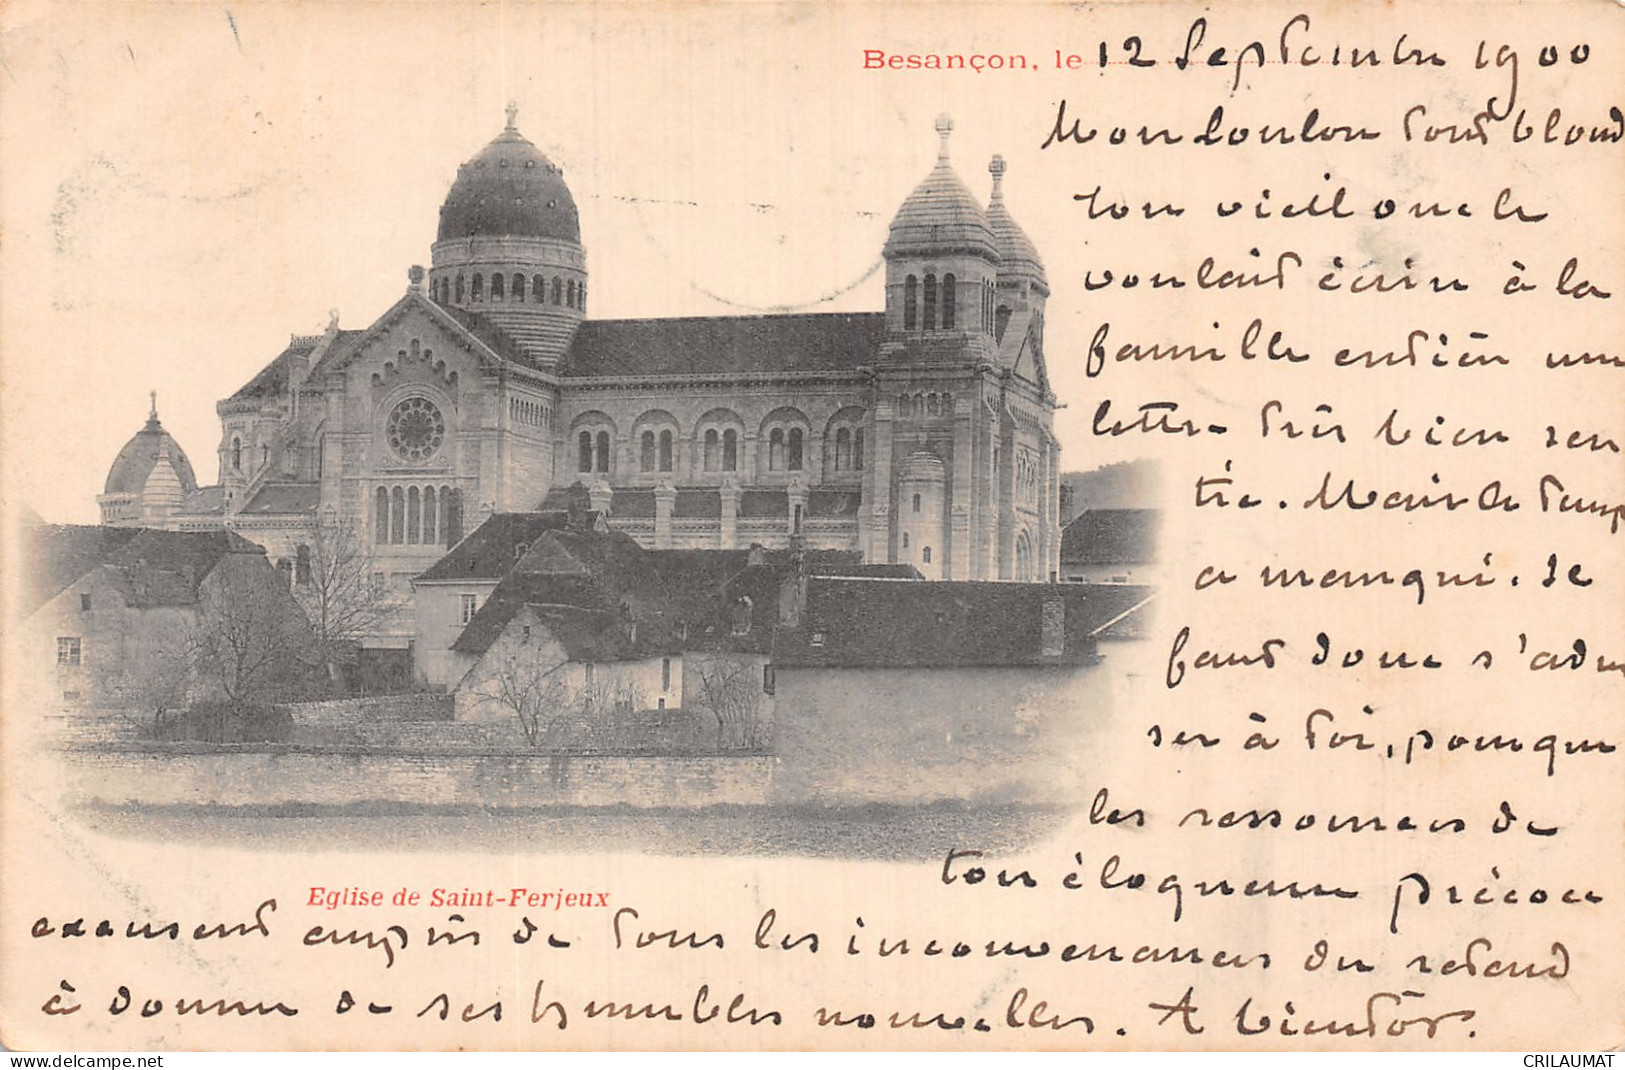 Besançon, le 12 Septembre 1900
Mon loulou tout blond
ton vieil oncle
voulait écrire à la
famille entière une
lettre très bien sen
tie. Mais le temps
a manqué. Je
faut donc s'adres
ser à toi, pour que
les ressources de
ton éloquence précoce
Eglise de Saint-Ferjeux
excusent auprès de tous les inconvenances du retard
à donner de ses humbles nouvelles. A bientôt.
delcampe.net
CRILAUMAT